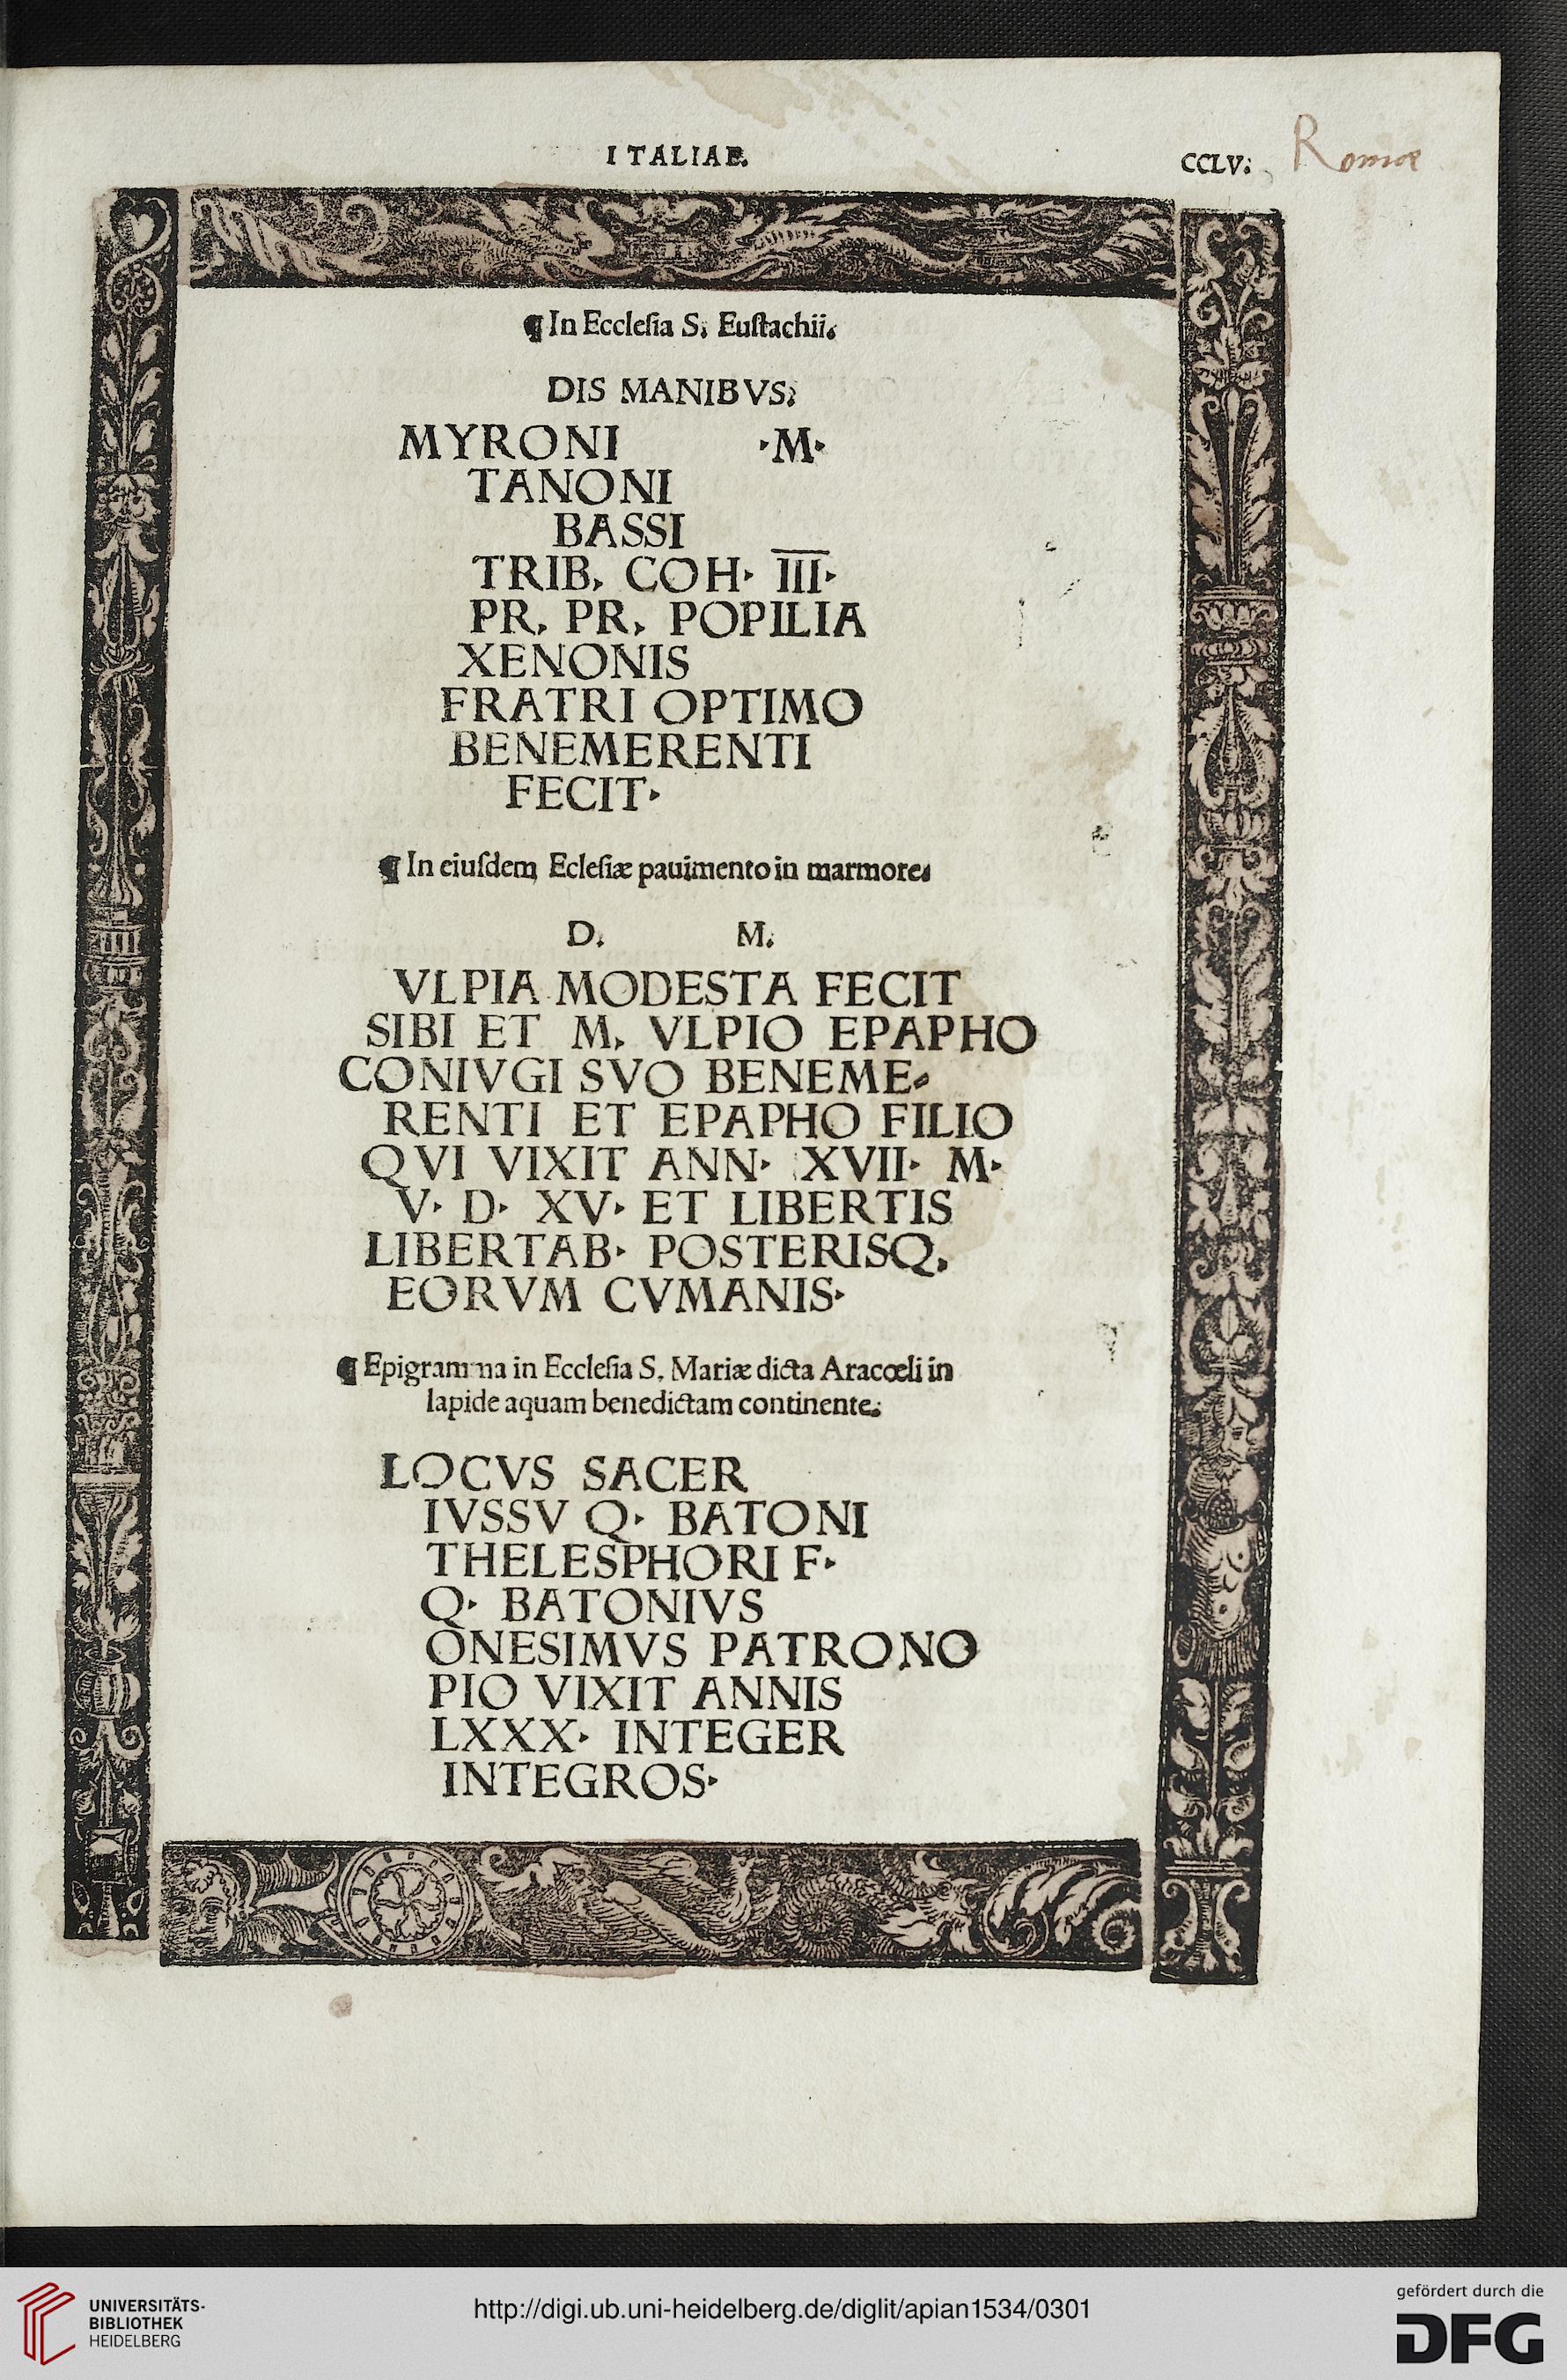 ITALIAE.
CCLV.
Romæ
¶ In Ecclesia S. Eustachii.
DIS MANIBVS.
MYRONI ·M·
TANONI
BASSI
TRIB. COH· III·
PR. PR. POPILIA
XENONIS
FRATRI OPTIMO
BENEMERENTI
FECIT·
¶ In eiusdem Eclesiæ pauimento in marmore.
D. M.
VLPIA MODESTA FECIT
SIBI ET M. VLPIO EPAPHO
CONIVGI SVO BENEME-
RENTI ET EPAPHO FILIO
QVI VIXIT ANN· XVII· M·
V· D· XV· ET LIBERTIS
LIBERTAB· POSTERISQ.
EORVM CVMANIS·
¶ Epigramma in Ecclesia S. Mariæ dicta Aracœli in
lapide aquam benedictam continente.
LOCVS SACER
IVSSV Q· BATONI
THELESPHORI F·
Q· BATONIVS
ONESIMVS PATRONO
PIO VIXIT ANNIS
LXXX· INTEGER
INTEGROS·
UNIVERSITÄTS-
BIBLIOTHEK
HEIDELBERG
http://digi.ub.uni-heidelberg.de/diglit/apian1534/0301
gefördert durch die
DFG